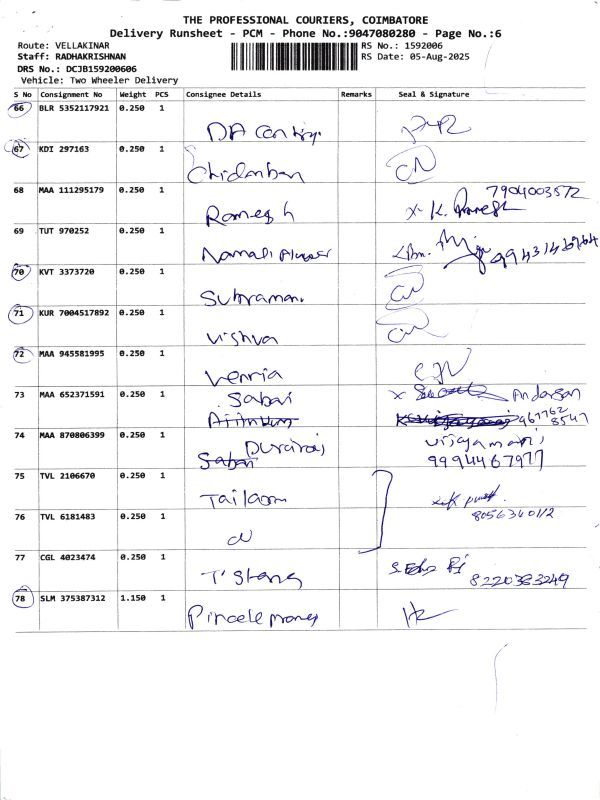 THE PROFESSIONAL COURIERS, COIMBATORE
Delivery Runsheet - PCM - Phone No.:9047080280 - Page No.:6
Route: VELLAKINAR
RS No.: 1592006
Staff: RADHAKRISHNAN
RS Date: 05-Aug-2025
DRS No.: DCJB159200606
Vehicle: Two Wheeler Delivery
S No Consignment No Weight PCS Consignee Details Remarks Seal & Signature
66 BLR 5352117921 0.250 1
67 KDI 297163 0.250 1
Chidamban CN
68 MAA 111295179 0.250 1 7904003572
Ramesh x K.
69 TUT 970252 0.250 1
70 KVT 3373720 0.250 1
Subramani CN
71 KUR 7004517892 0.250 1
Vishva CN
72 MAA 945581995 0.250 1
Venria CN
73 MAA 652371591 0.250 1 Sabari x
74 MAA 870806399 0.250 1 Vijayamani
Sabari 9994467977
75 TVL 2106670 0.250 1
76 TVL 6181483 0.250 1 8056340112
77 CGL 4023474 0.250 1
8220383249
78 SLM 375387312 1.150 1